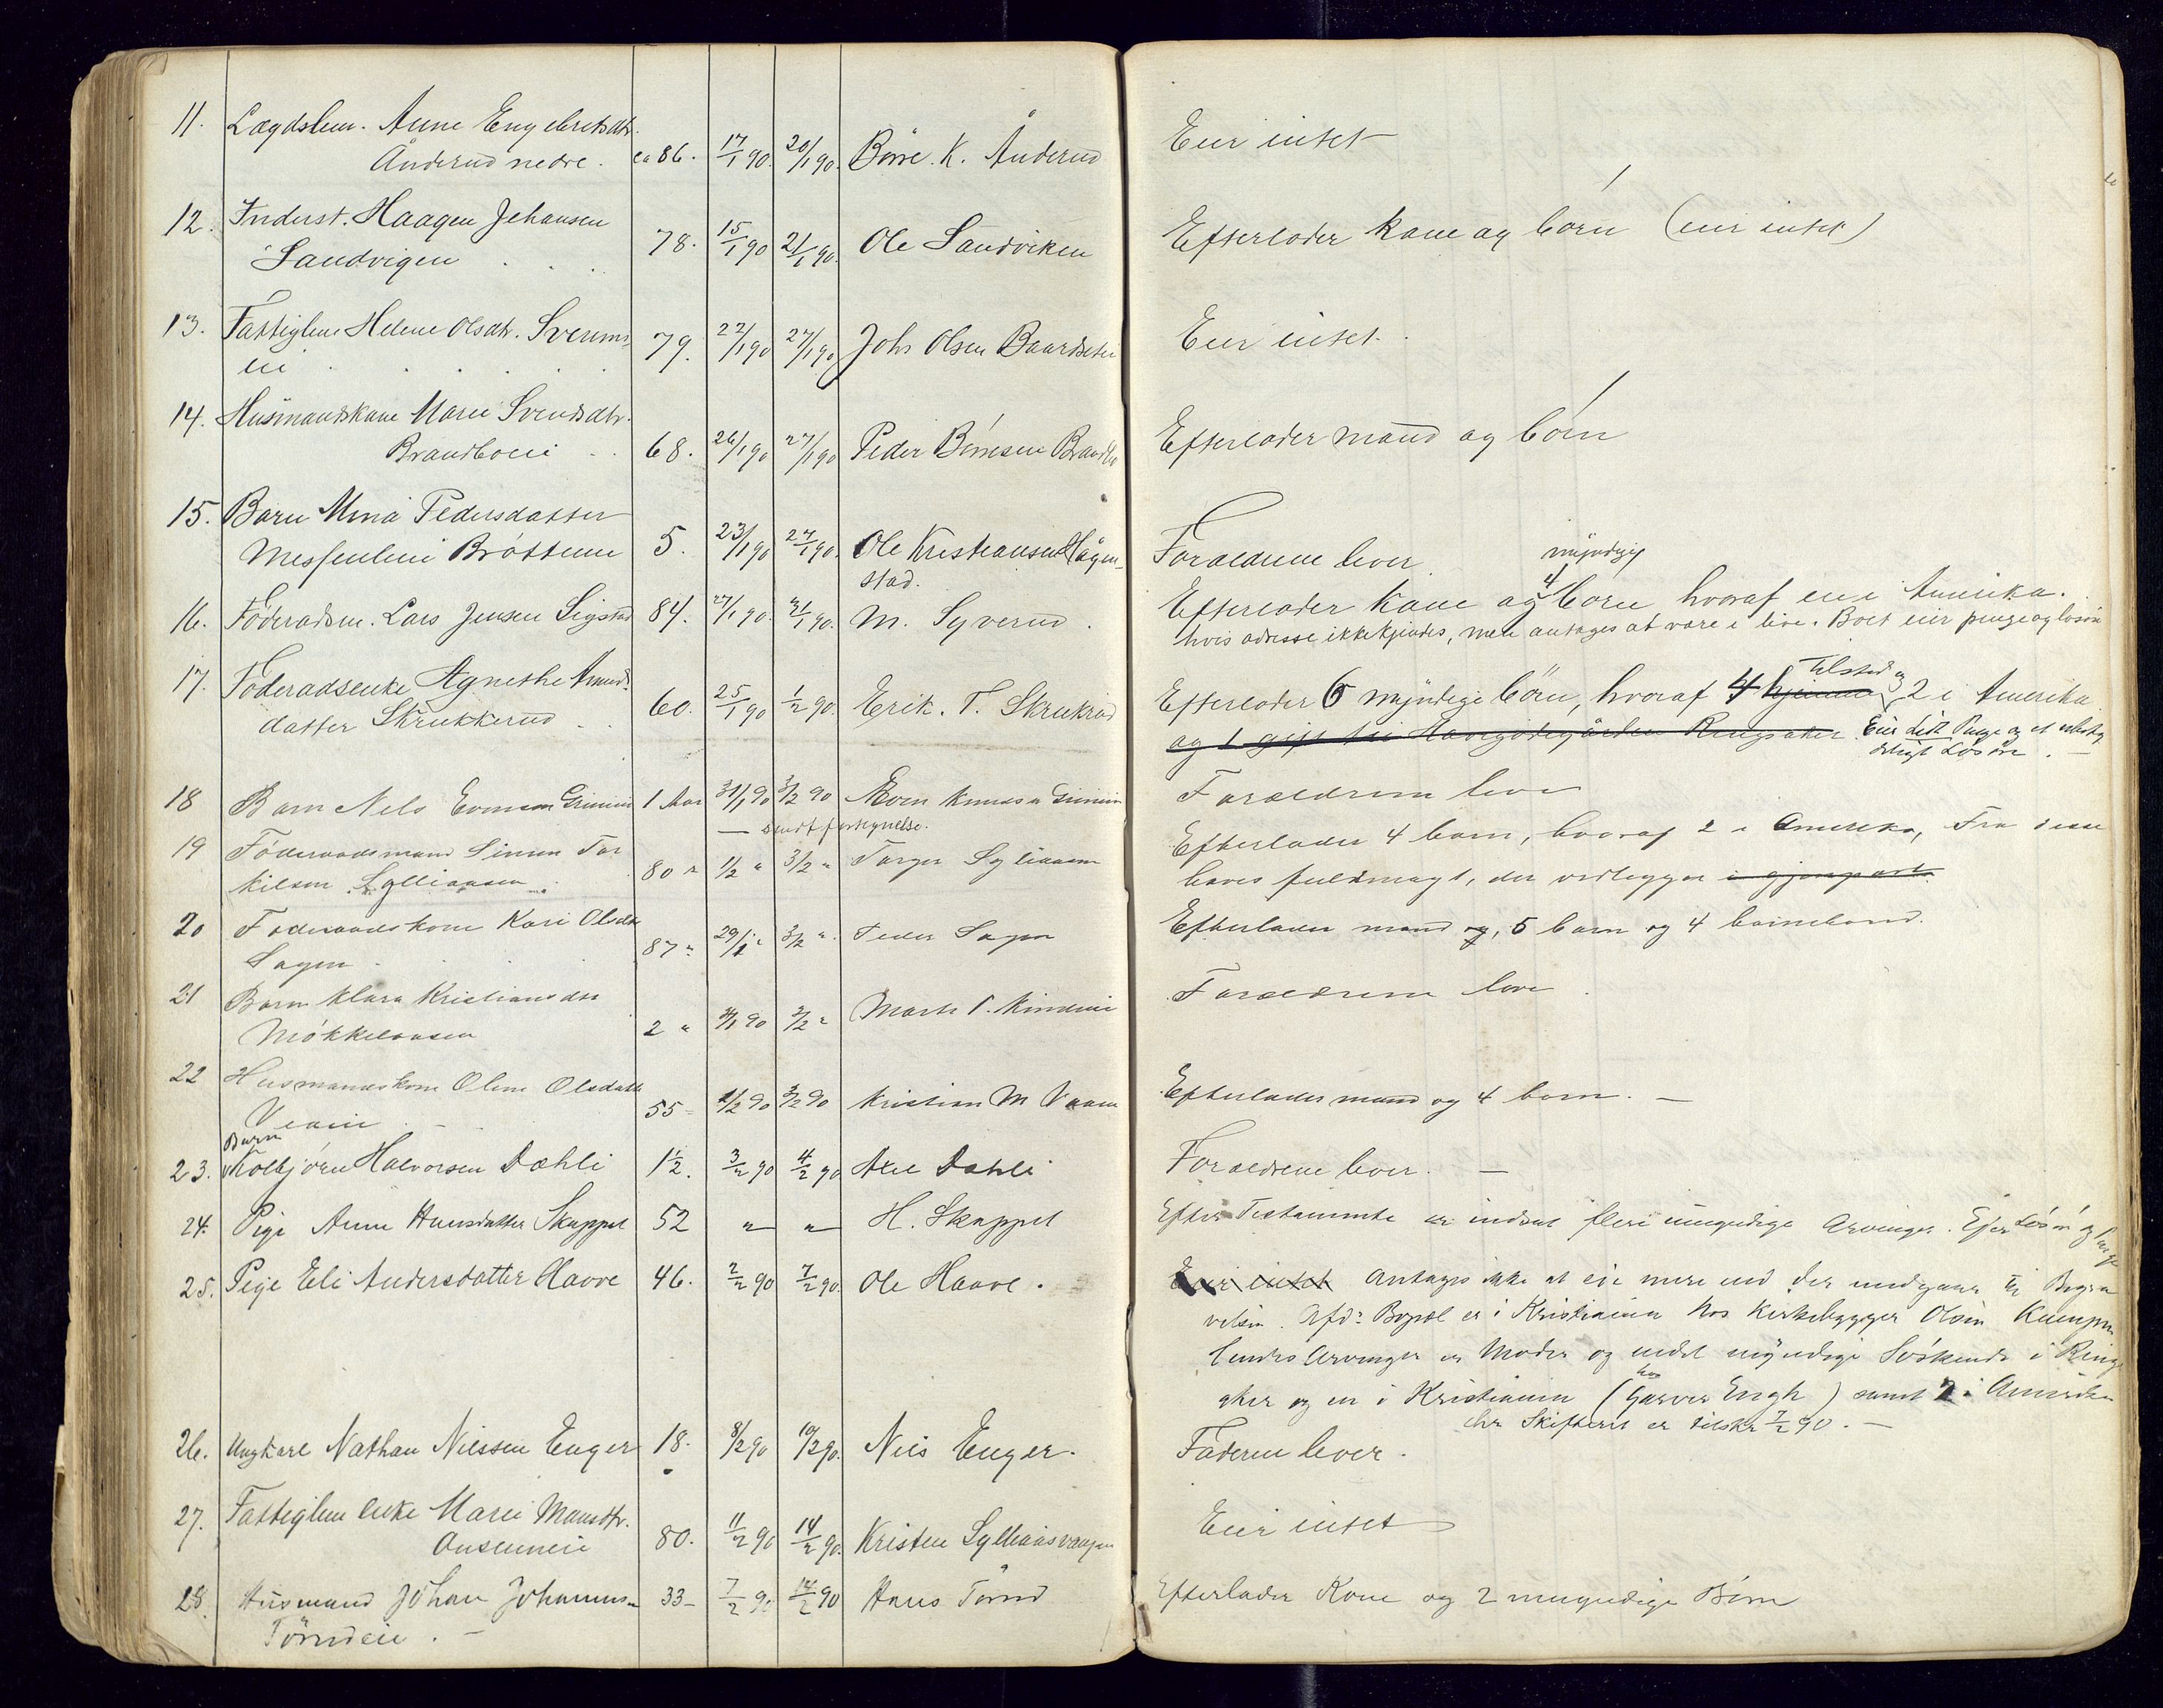 11. Lægdslem. Anne Engebretsdtr.
Ånderud nedre. ca 86. 17/1 90. 20/1 90. Børre. K. Ånderud Eier intet
12. Inderst. Haagen Johansen
Sandvigen 78. 15/1 90 21/1 90. Ole Sandviken Efterlader kone og børn (eier intet)
13. Fattiglem Helene Olsdtr. Sveums-
eie 79. 22/1 90 27/1 90 Johs Olsen Baardseter Eier intet.
14. Husmandskone Marie Svendsdtr.
Brandboeie 68. 26/1 90 27/1 90 Peder Børresen Brandbo Efterlader mand og børn
15. Barn Mina Pedersdatter
Messenlien Brøttum 5. 23/1 90 27/1 90. Ole Kristiansen Hågen-
stad. Forældrene lever.
16. Føderaadsm. Lars Jensen Sigstad 84. 27/1 90. 31/1 90. M. Syverud. Efterlader kone og 4 myndige børn, hvoraf en i Amerika.
hvis adresse ikke kjendes, men antages at være i live. Boet eier penge og løsøre
17. Føderaadsenke Agnethe Amunds-
datter Skrukkerud 60. 25/1 90 1/2 90. Erik. T. Skrukrud Efterlader 6 myndige børn, hvoraf 4 hjemme tilstede og 2 i Amerika
og 1 gift til Ringsaker. Eier lidt Penge og et ubety-
deligt Løsøre.
18 Barn Nels Evensen Grimin 1 Aar 31/1 90 3/2 90 Even Knudsen Grimin Forældrene lever
— sendt fortegnelse.
19 Føderaadsmand Simen Tor
kilsen Sylliaasen 80 " 1/2 " 3/2 " Torger Syliaasen Efterlader 4 barn, hvoraf 2 i Amerika, Fra disse
haves fuldmagt, der vedlegges i gjenpart.
20 Føderaadskone Kari Olsdtr
Sagen 87 " 29/1 " 3/2 " Peder Sagen Efterlader mand og, 5 barn og 4 barnebarn.
21 Barn Klara Kristiansdtr
Mökkelaasen 2 " 31/1 90 3/2 " Forældrene lever.
22 Husmandskone Oline Olsdatter
55 – 1/2 90 3/2 90 Kristian M Efterlader mand og 4 barn. —
23. Barn Kolbjørn Halvorsen Dæhli 1½. 3/2 90 4/2 90 Axel Dæhli Forældrene lever. —
24. Pige Anne Hansdatter Skappel 52 " " H. Skappel Efter Testamente er indsat flere umyndige Arvinger. Ejer Løsøre og Penge
25. Pige Eli Andersdatter Haave 46. 2/2 90 7/2 90. Ole Haave. Eier intet Antages ikke at eie mere end der medgaar til Begra
velsen. Afd: Bopæl er i Kristiania hos Kirkebygger Olsen Kiempen
hendes Arvinger er Moder og endel myndige Søskende i Rings
aker og en i Kristiania (hos Garver Engh) samt 2 i Amerika
Skifteret er tilskr 7/2 90. —
26. Ungkarl Nathan Nilssen Enger 18. 8/2 90 10/2 90. Nils Enger. Faderen lever.
27. Fattiglem enke Marie Mansdtr.
80. 11/2 90 14/2 90. Kristen Sylliaasvangen Eier intet
28. Husmand Johan Johannesen
Tørrudeie. — 33 – 7/2 90 14/2 90 Hans Tørrud Efterlader Kone og 2 umyndige Børn